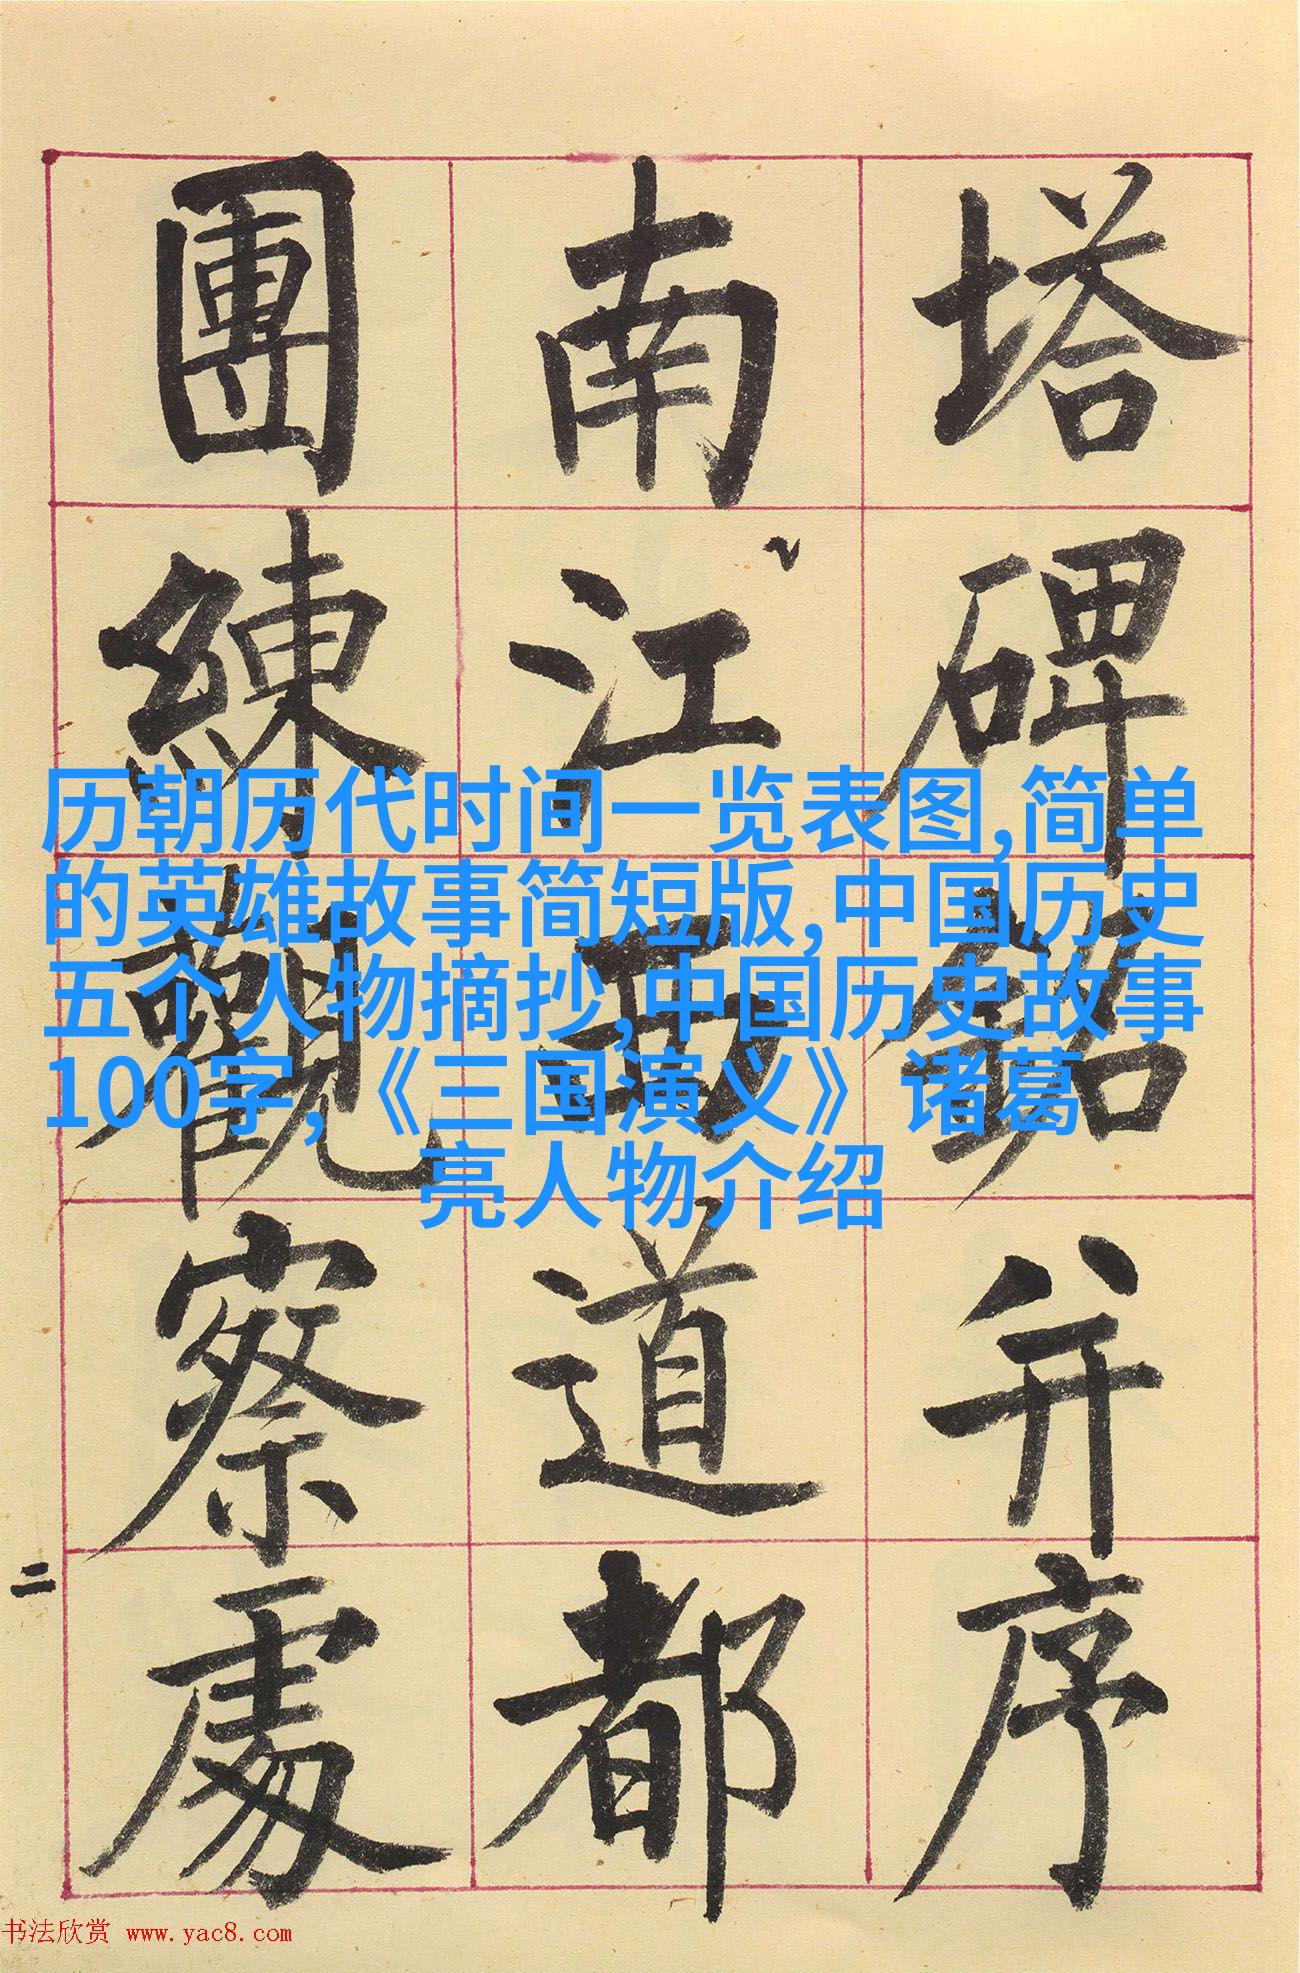 塔碑銘并序
南江西道都
團練觀察處
二
历朝历代时间一览表图,简单
的英雄故事简短版,中国历史
五个人物摘抄,中国历史故事
100字,《三国演义》诸葛
亮人物介绍
书法欣赏 www.yac8.com